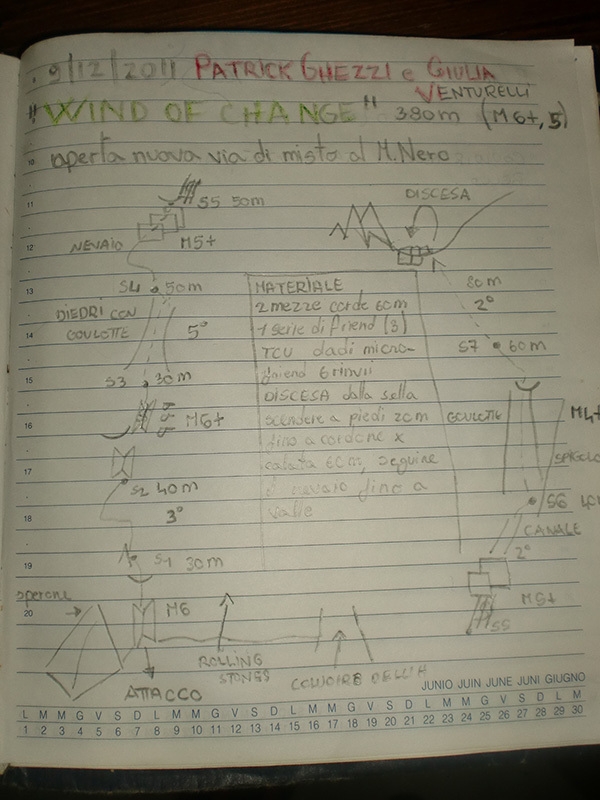 9/12/2011 PATRICK GHEZZI e GIULIA
VENTURELLI
"WIND OF CHANGE" 380m (M6+, 5)
aperta nuova via di misto al M.Nero
S5 50m
M5+
NEVAIO
S4 50m
DIEDRI CON
GOULOTTE
5°
S3 30m
M6+
S2 40m
3°
S1 30m
sperone
M6
ATTACCO
ROLLING
STONES
COULOIRE DELL'H
MATERIALE
2 mezze corde 60m
1 serie di friend (8)
TCU dadi micro-
friend 6 rinvii
DISCESA dalla sella
scendere a piedi 20m
fino a cordone x
calata 60m, seguire
il nevaio fino a
valle
DISCESA
80m
2°
S7 60m
GOULOTTE
M4+
SPIGOLO
S6
CANALE
2°
M5+
S5
JUNIO JUIN JUNE JUNI GIUGNO
L M M G V S D L M M G V S D L M M G V S D L M M G V S D L M
1 2 3 4 5 6 7 8 9 10 11 12 13 14 15 16 17 18 19 20 21 22 23 24 25 26 27 28 29 30
10
11
12
13
14
15
16
17
18
19
20